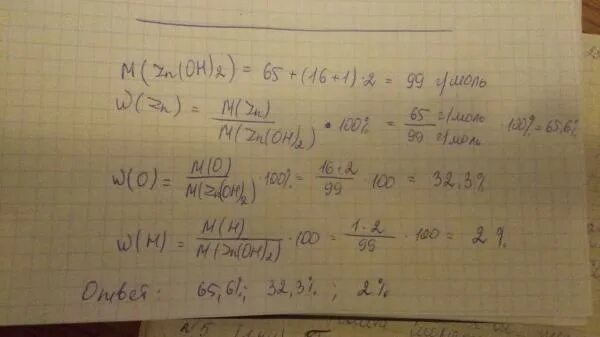 M(Zn(OH)2) = 65 + (16+1)·2 = 99 г/моль
W(Zn) = M(Zn)/M(Zn(OH)2) · 100% = 65 г/моль/99 г/моль · 100% = 65,6%
W(O) = M(O)/M(Zn(OH)2) · 100% = 16·2/99 · 100 = 32,3%
W(H) = M(H)/M(Zn(OH)2) · 100 = 1·2/99 · 100 = 2%
Ответ: 65,6%; 32,3%; 2%
№5